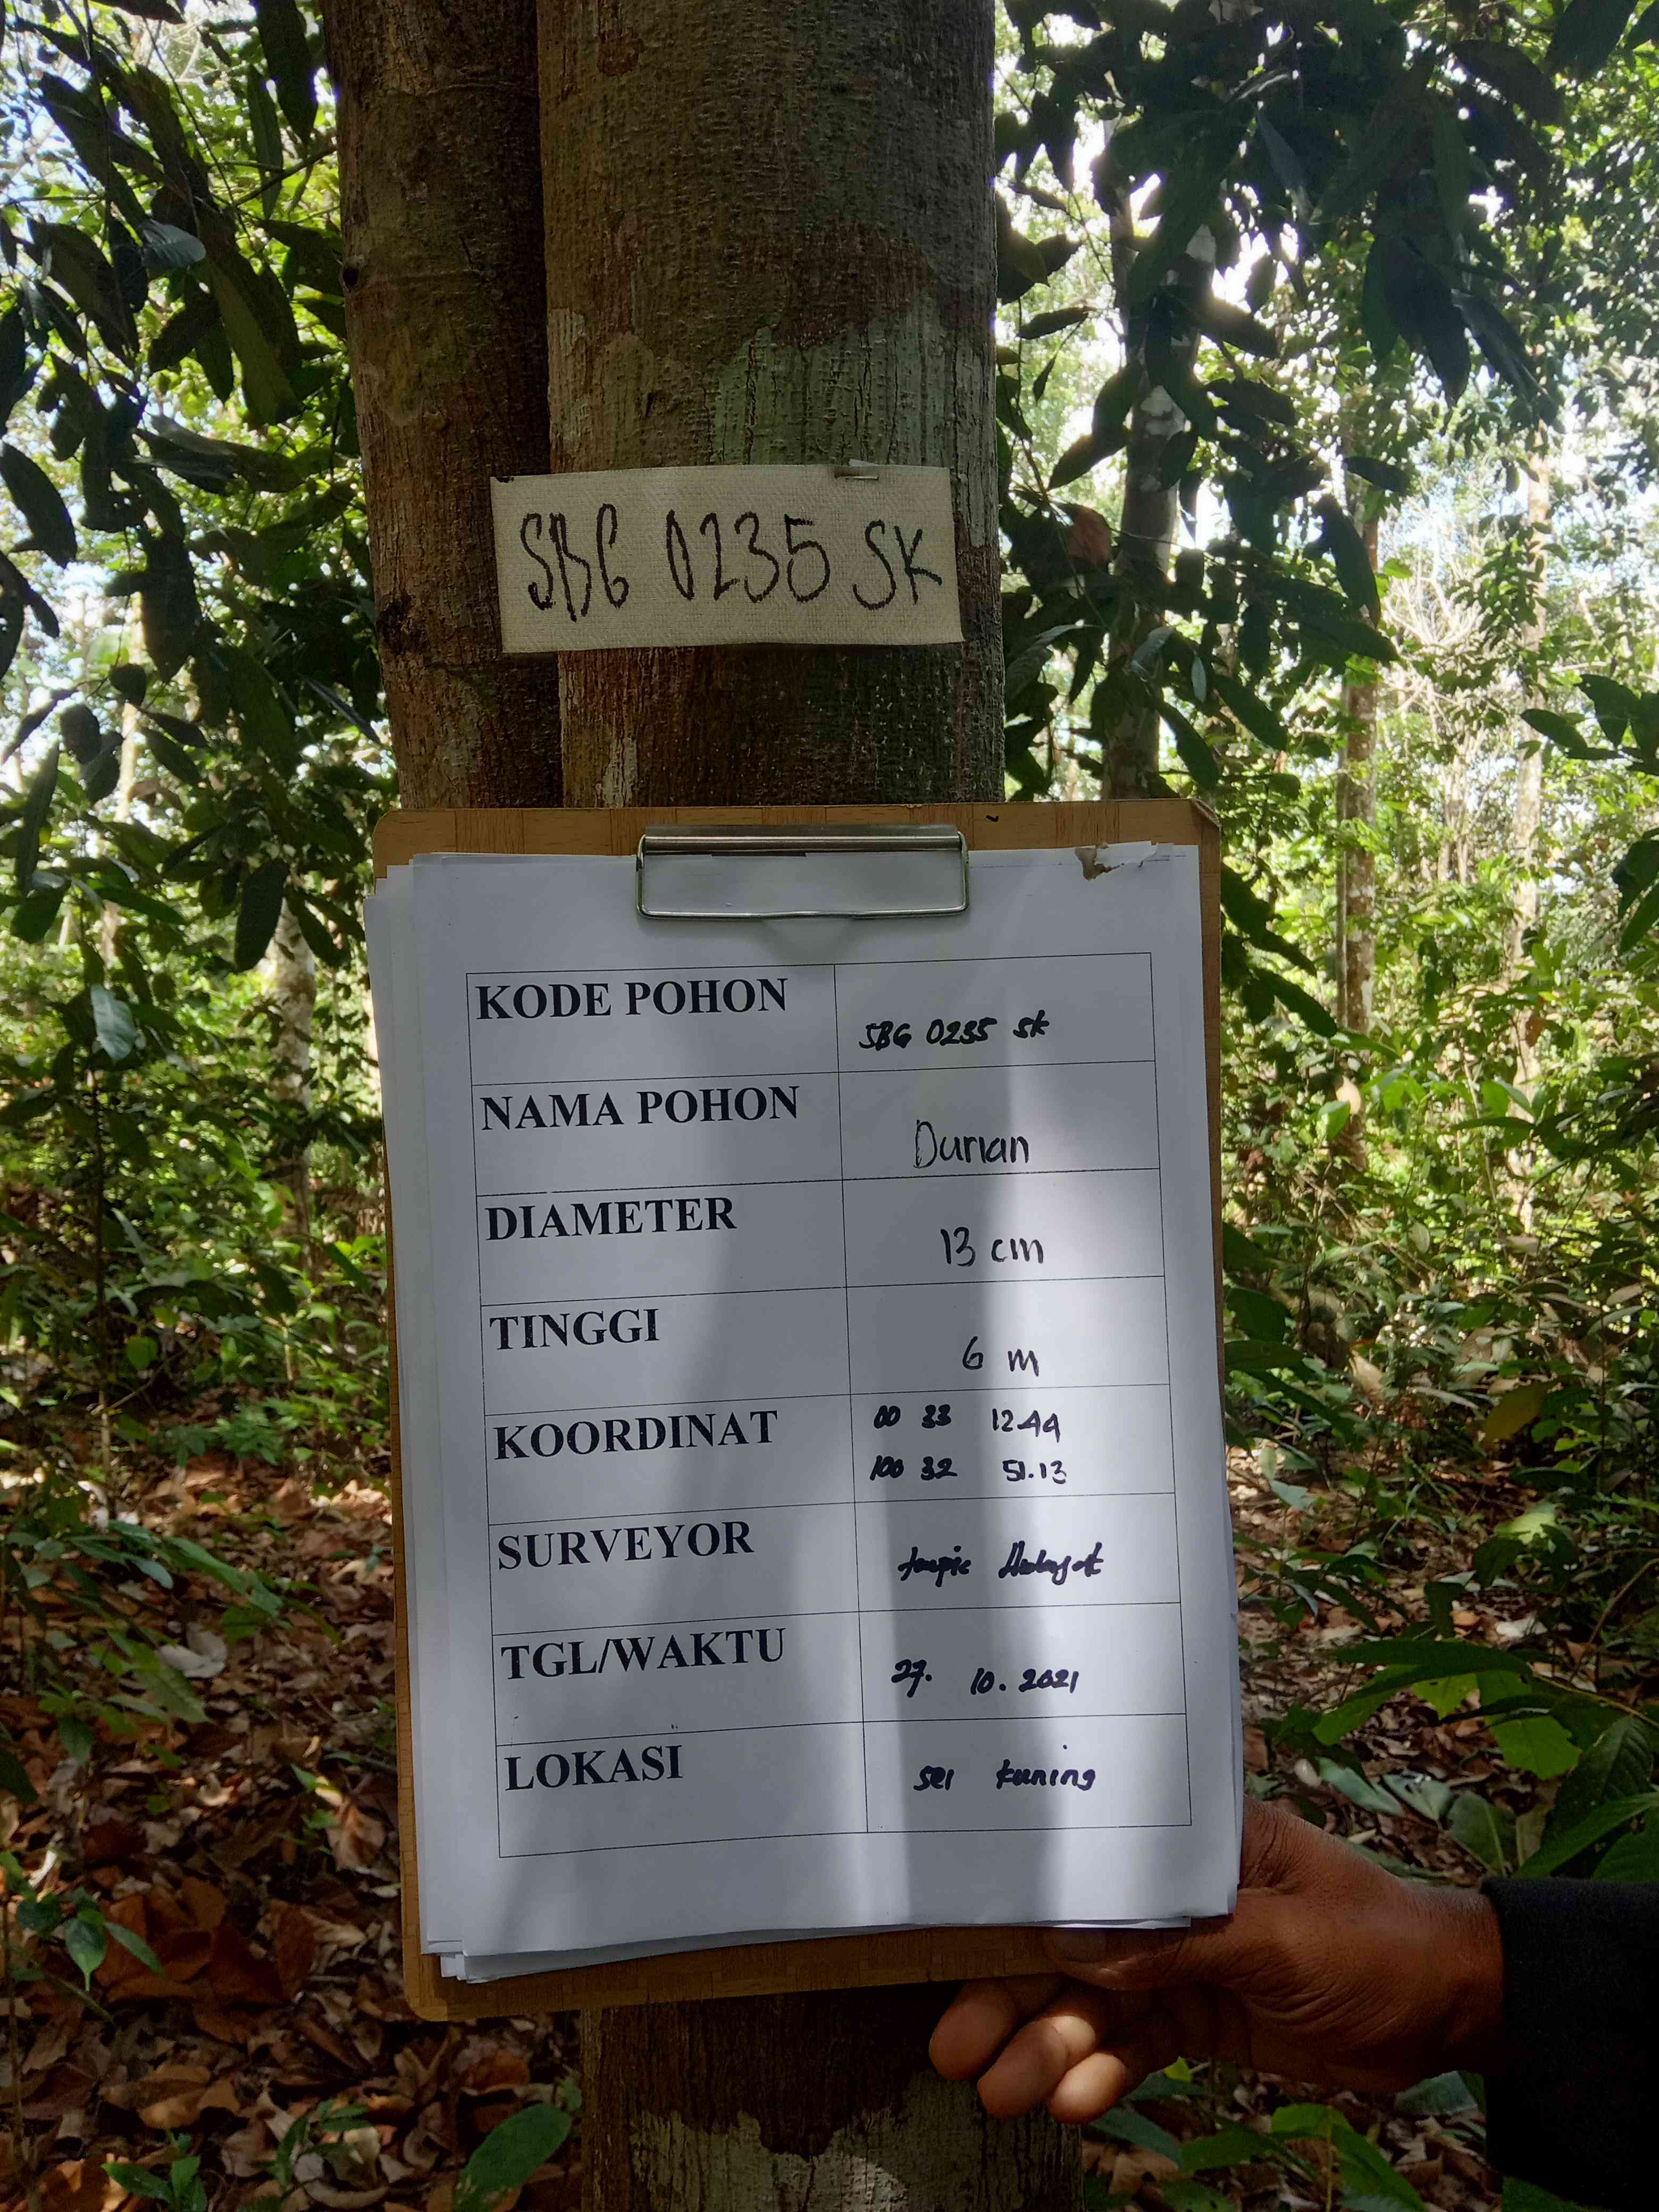 SBG 0235 SK
KODE POHON SBG 0235 SK
NAMA POHON Durian
DIAMETER 13 cm
TINGGI 6 m
KOORDINAT 00 33 12.44
100 32 51.13
SURVEYOR
TGL/WAKTU 27. 10. 2021
LOKASI sei kuning